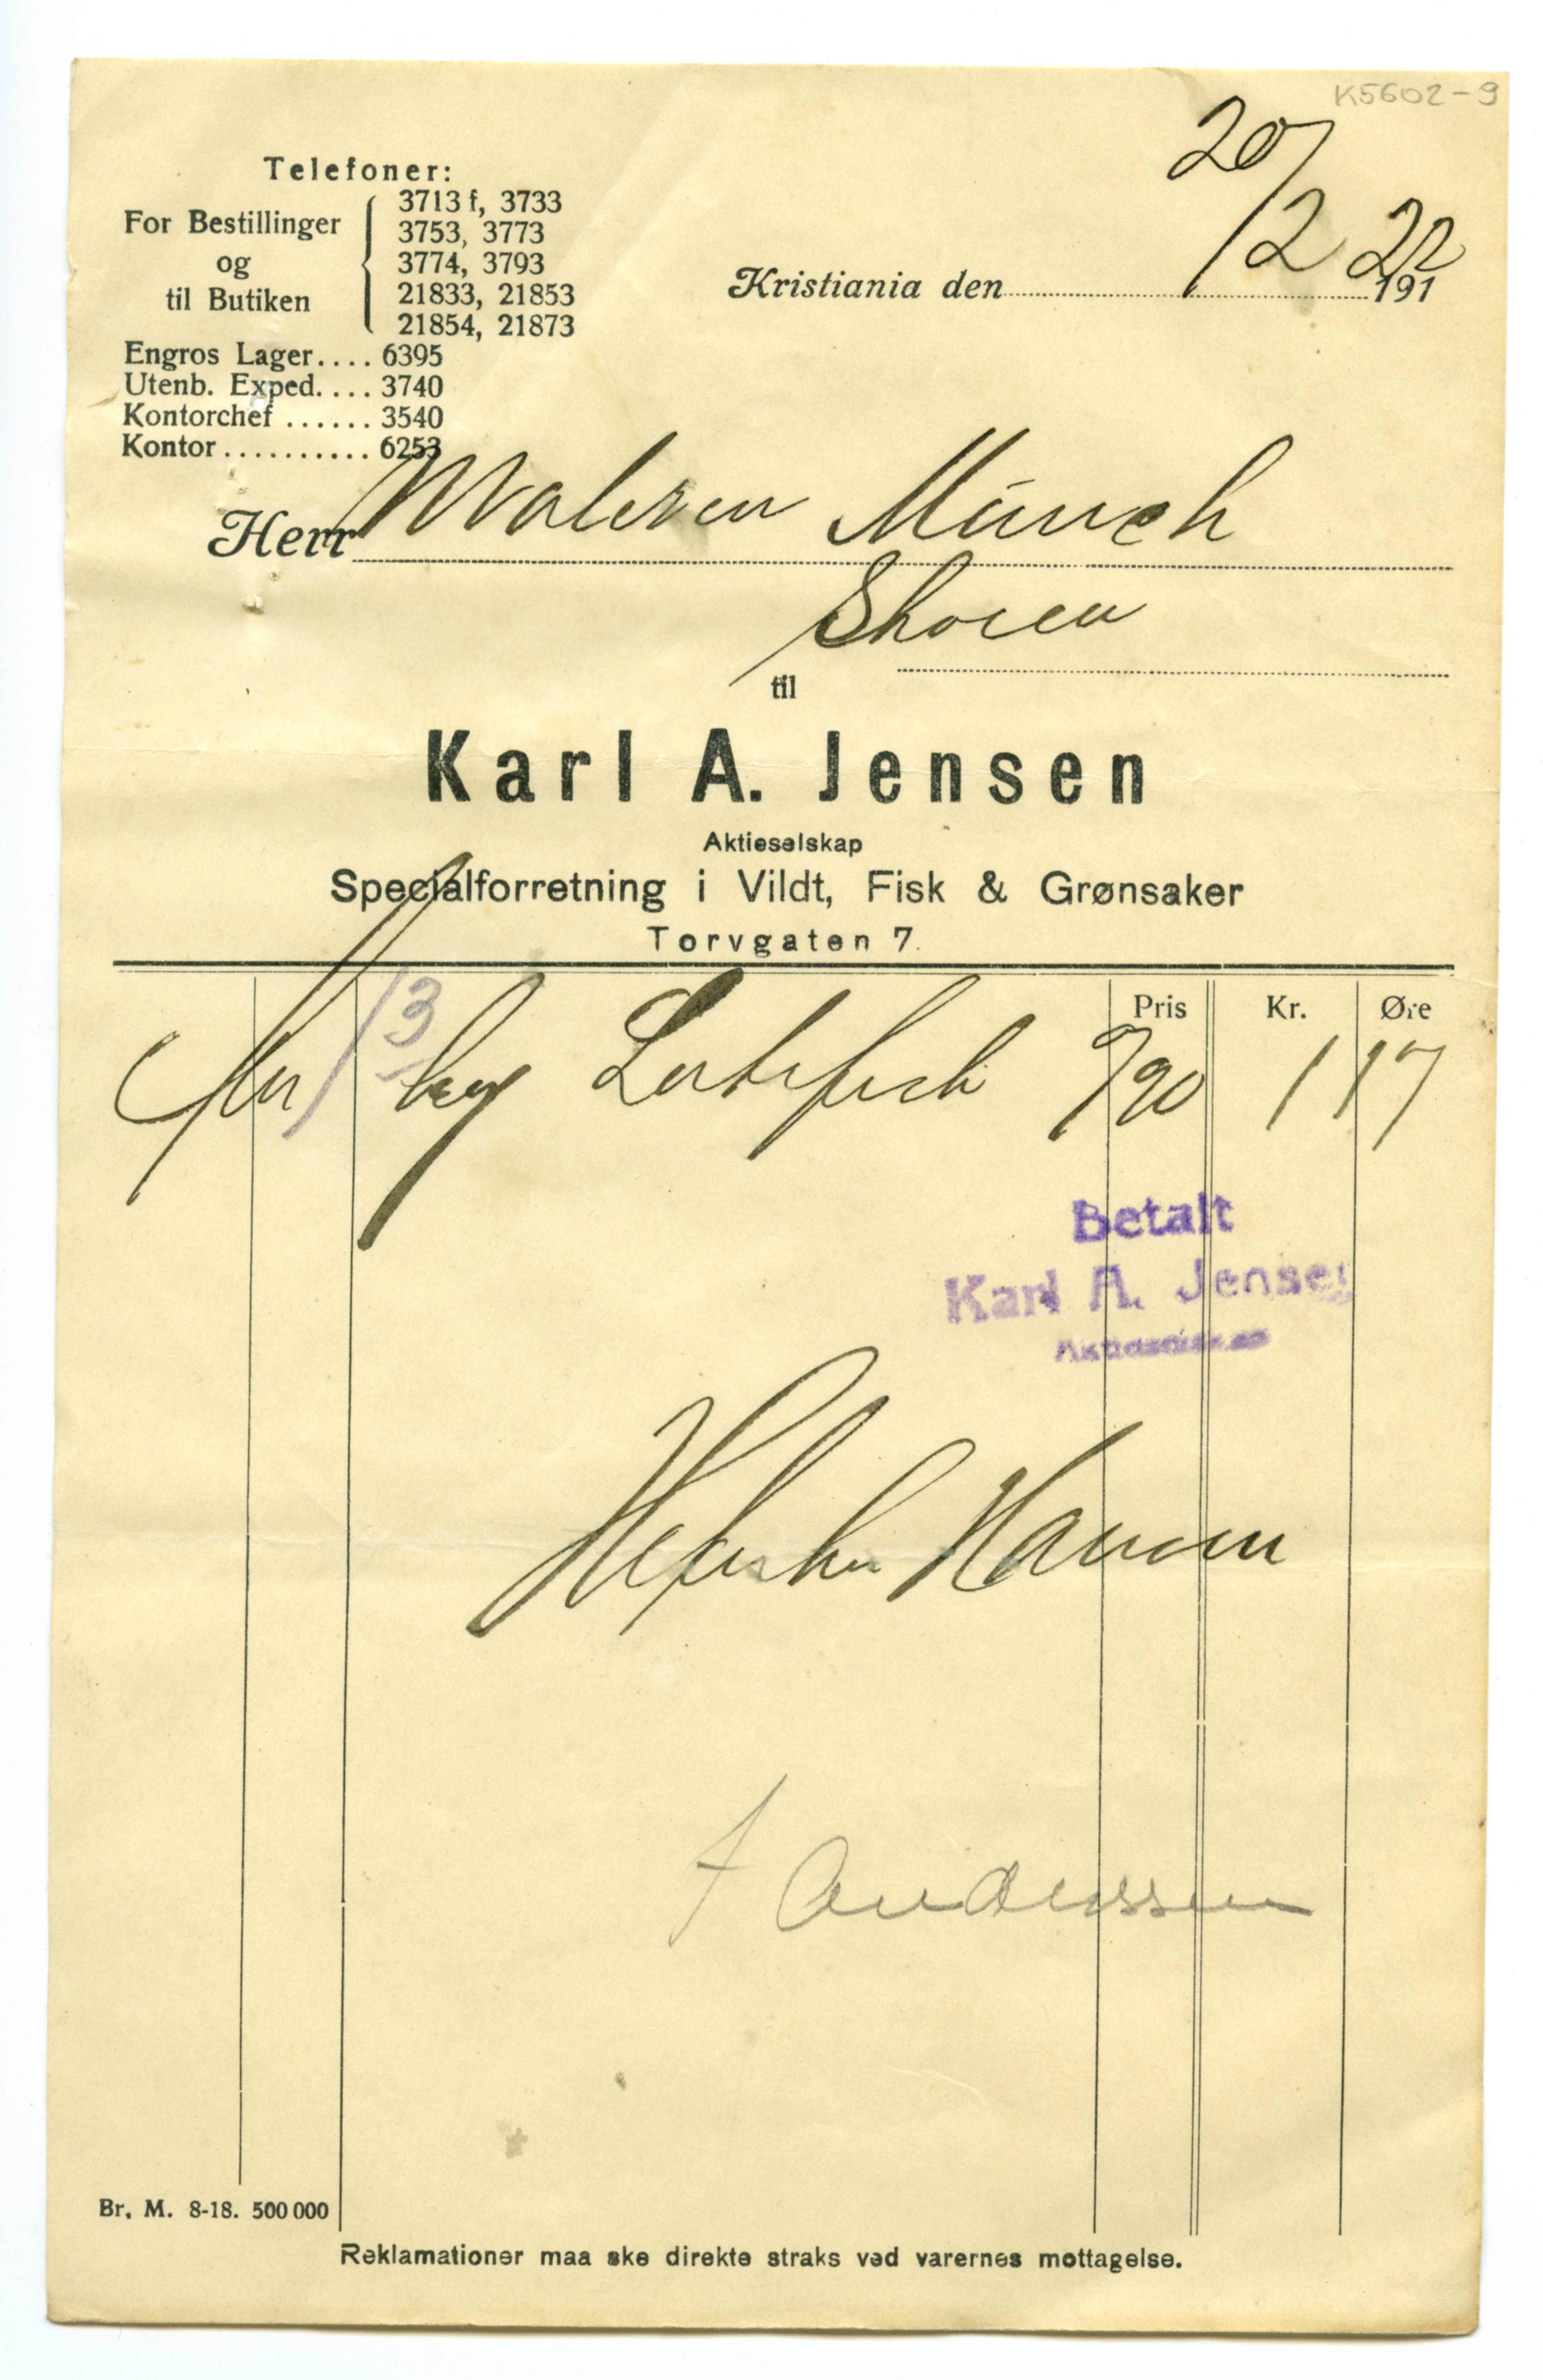 K5602-9
Telefoner:
For Bestillinger
og
til Butiken
3713 f, 3733
3753, 3773
3774, 3793
21833, 21853
21854, 21873
Engros Lager.... 6395
Utenb. Exped.... 3740
Kontorchef ...... 3540
Kontor .......... 6253
20/2 22
Kristiania den 191
Herr Maleren Münch
Skøien
til
Karl A. Jensen
Aktieselskap
Specialforretning i Vildt, Fisk & Grønsaker
Torvgaten 7.
Pris Kr. Øre
13 kg Lutefisk 90 117
Betalt
Karl A. Jensen
Aktieselskap
Hansen
Anderssen
Br. M. 8-18. 500 000
Reklamationer maa ske direkte straks ved varernes mottagelse.